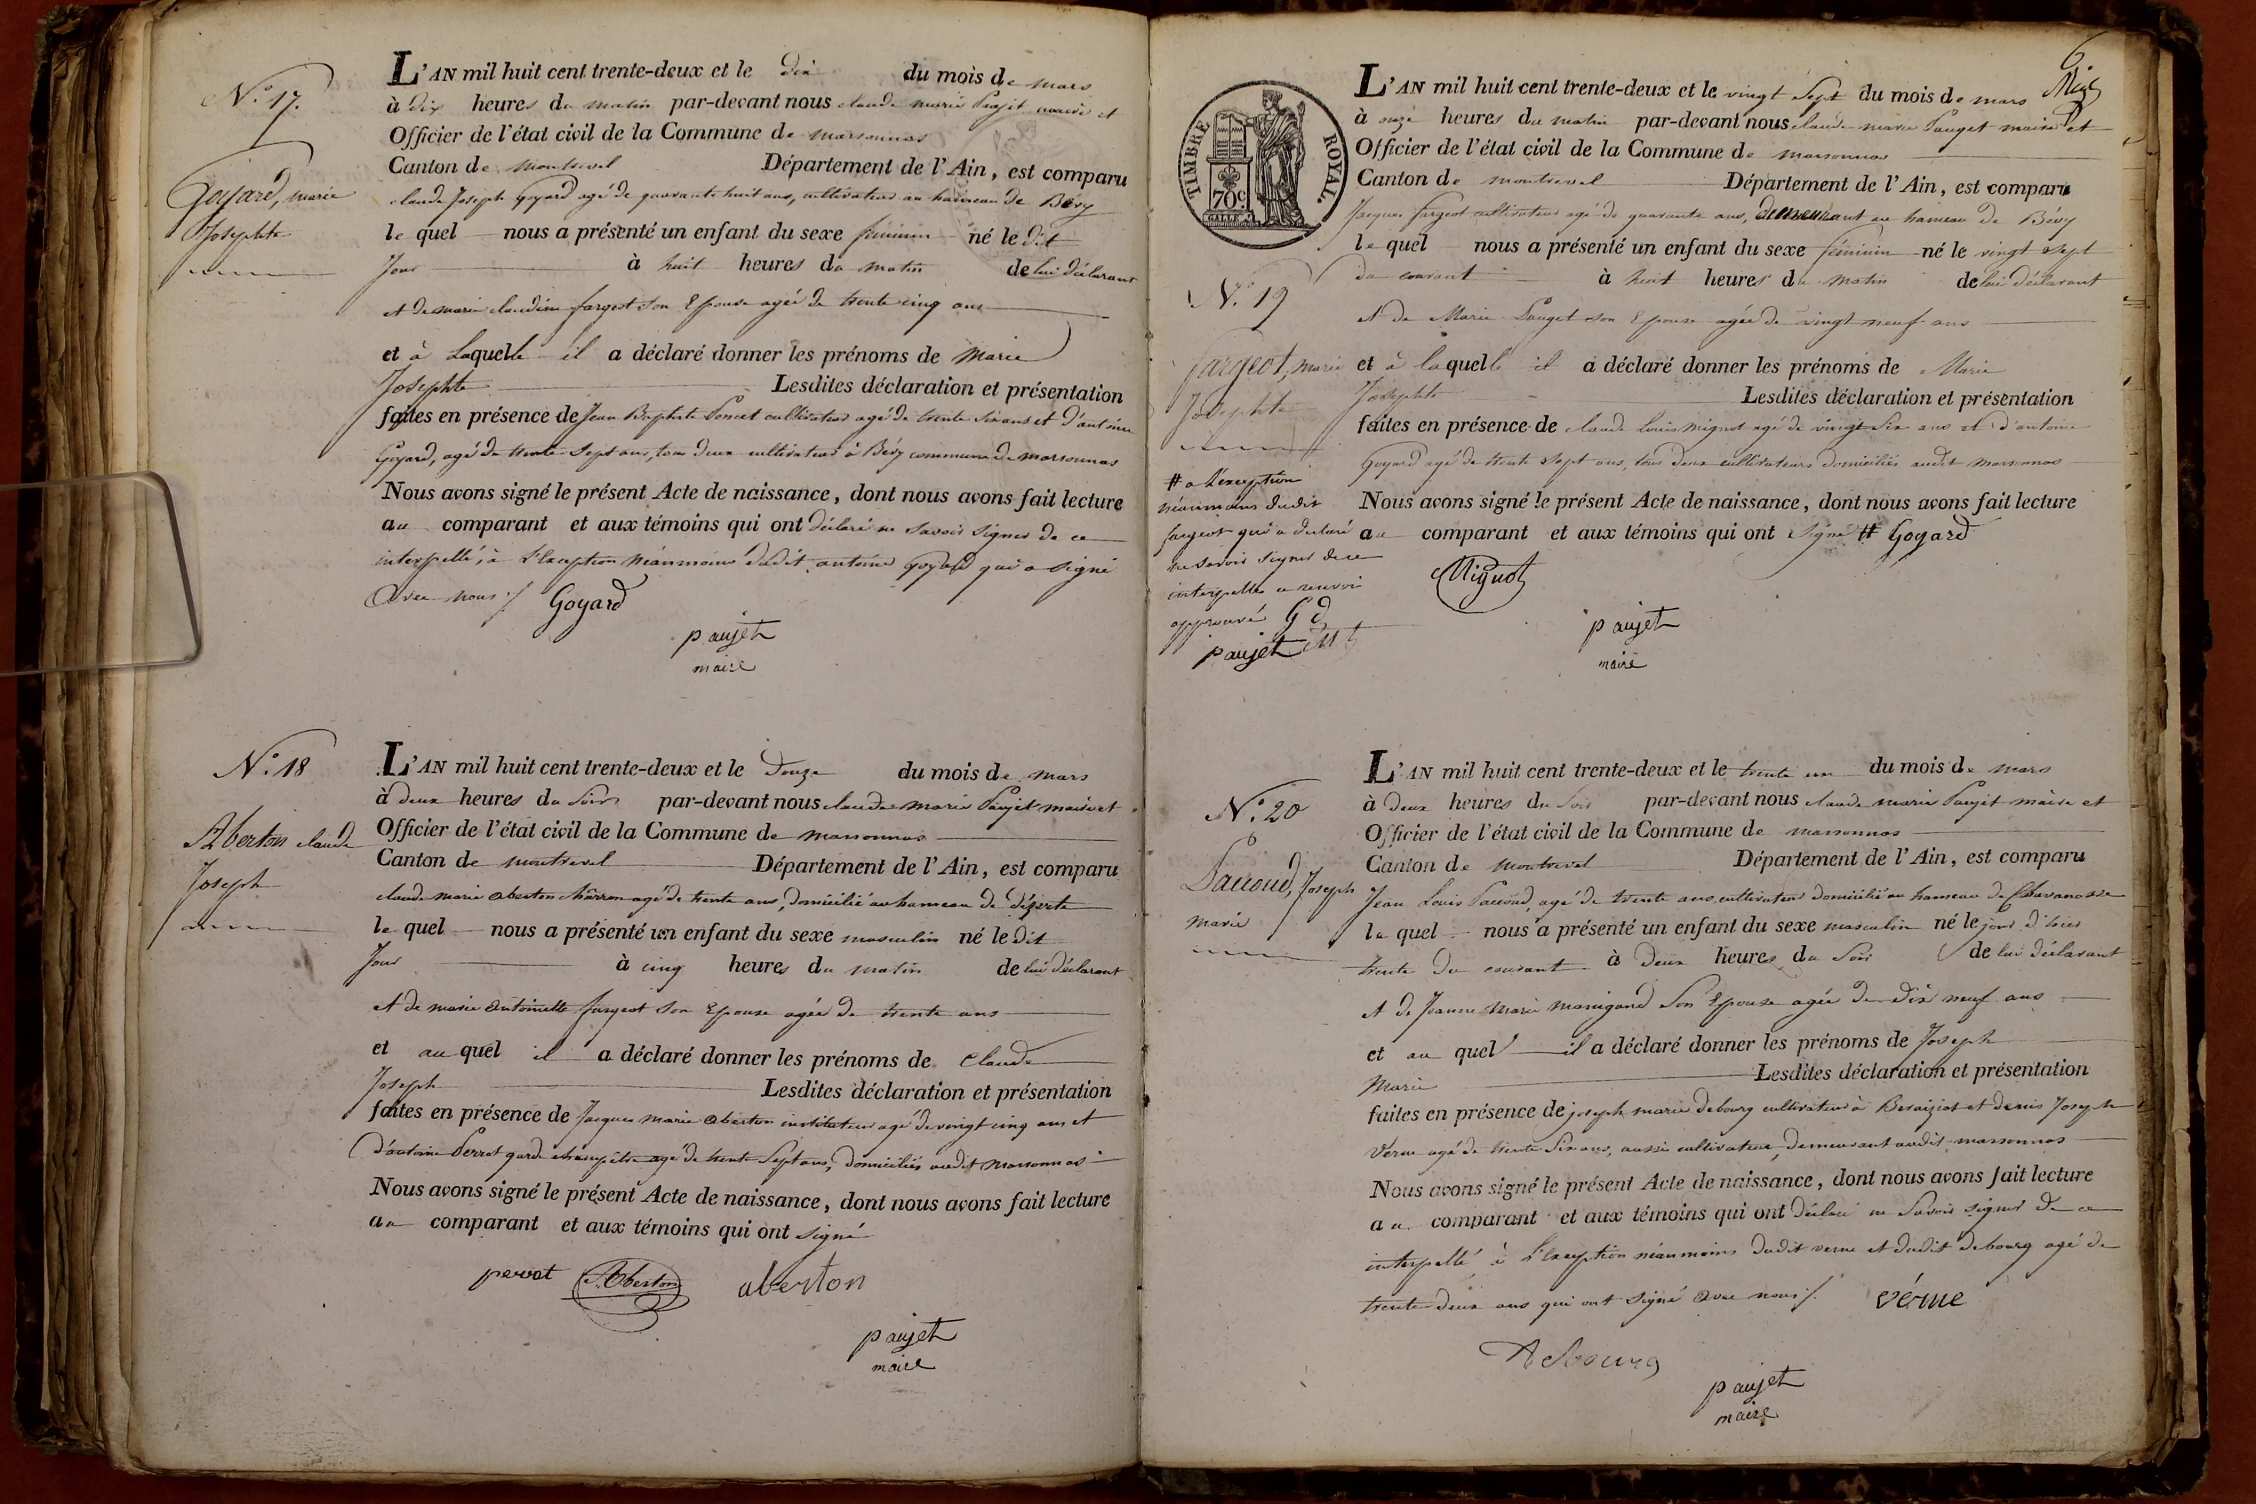 N.° 17.
Goyard, marie
Josephte
L'AN mil huit cent trente-deux et le dix du mois de mars
à dix heures du matin par-devant nous claude marie Paujet maire et
Officier de l'état civil de la Commune de marsonnas
Canton de montrevel Département de l'Ain, est comparu
claude Joseph Goyard agé de quarante huit ans, cultivateur au hameau de Bévy
le quel nous a présenté un enfant du sexe féminin né le dit
Jour à huit heures du matin de lui déclarant
et de marie claudine fargeot son Epouse agée de trente cinq ans
et à Laquelle il a déclaré donner les prénoms de Marie
Josephte Lesdites déclaration et présentation
faites en présence de Jean Baptiste Poncet cultivateur agé de trente Six ans et d'antoine
Goyard, agé de trente Sept ans, tous deux cultivateurs à Bévy commune de marsonnas
Nous avons signé le présent Acte de naissance, dont nous avons fait lecture
au comparant et aux témoins qui ont déclaré ne savoir signer de ce
interpellé, à l'Exception néanmoins dudit antoine Goyard qui a signé
avec nous ./. Goyard
paujet
maire
N.° 18
Aberton claude
Joseph
L'AN mil huit cent trente-deux et le Douze du mois de mars
à deux heures du Soir par-devant nous claude marie Paujet maire et
Officier de l'état civil de la Commune de marsonnas
Canton de montrevel Département de l'Ain, est comparu
claude marie aberton charron agé de trente ans, domicilié au hameau de déserte
le quel nous a présenté un enfant du sexe masculin né le dit
Jour à cinq heures du matin de lui déclarant
et de marie antoinette fargeot son Epouse agée de trente ans
et au quel il a déclaré donner les prénoms de Claude
Joseph Lesdites déclaration et présentation
faites en présence de Jacques marie aberton instituteur agé de vingt cinq ans et
d'antoine Perrot garde champêtre agé de trente Sept ans, domiciliés audit marsonnas
Nous avons signé le présent Acte de naissance, dont nous avons fait lecture
au comparant et aux témoins qui ont signé
perrot Aberton aberton
paujet
maire
6
TIMBRE ROYAL.
70c
N.° 19
fargeot, marie
Josephte
L'AN mil huit cent trente-deux et le vingt Sept du mois de mars
à onze heures du matin par-devant nous claude marie Pauget maire et
Officier de l'état civil de la Commune de marsonnas
Canton de montrevel Département de l'Ain, est comparu
Jacques fargeot cultivateur agé de quarante ans, demeurant au hameau de Bévy
le quel nous a présenté un enfant du sexe féminin né le vingt sept
du courant à huit heures du matin de lui déclarant
et de Marie Pauget son Epouse agée de vingt neuf ans
et à laquelle il a déclaré donner les prénoms de Marie
Josephte Lesdites déclaration et présentation
faites en présence de claude Louis mignot agé de vingt Six ans et d'antoine
Goyard agé de trente Sept ans, tous deux cultivateurs domiciliés audit marsonnas
Nous avons signé le présent Acte de naissance, dont nous avons fait lecture
au comparant et aux témoins qui ont signé # Goyard
Mignot
paujet
maire
# a l'exception
néanmoins dudit
fargeot qui a déclaré
ne savoir signer de ce
interpellé ce renvoi
approuvé G d
paujet M
N.° 20
Paccoud, Joseph
marie
L'AN mil huit cent trente-deux et le trente un du mois de mars
à deux heures du Soir par-devant nous claude marie Paujet maire et
Officier de l'état civil de la Commune de marsonnas
Canton de montrevel Département de l'Ain, est comparu
Jean Louis Paccoud, agé de trente ans cultivateur domicilié au hameau de Chavanosse
le quel nous a présenté un enfant du sexe masculin né le jour d'hier
trente du courant à Deux heures du Soir de lui déclarant
et de Jeanne Marie manigand Son Epouse agée de dix neuf ans
et au quel il a déclaré donner les prénoms de Joseph
Marie Lesdites déclaration et présentation
faites en présence de joseph marie debourg cultivateur à et denis Joseph
Verne agé de trente Six ans, aussi cultivateur, demeurant audit marsonnas
Nous avons signé le présent Acte de naissance, dont nous avons fait lecture
au comparant et aux témoins qui ont déclaré ne Savoir signer de ce
interpellé à l'Exception néanmoins dudit verne et dudit debourg agé de
trente deux ans qui ont signé avec nous ./. vérne
debourg
paujet
maire